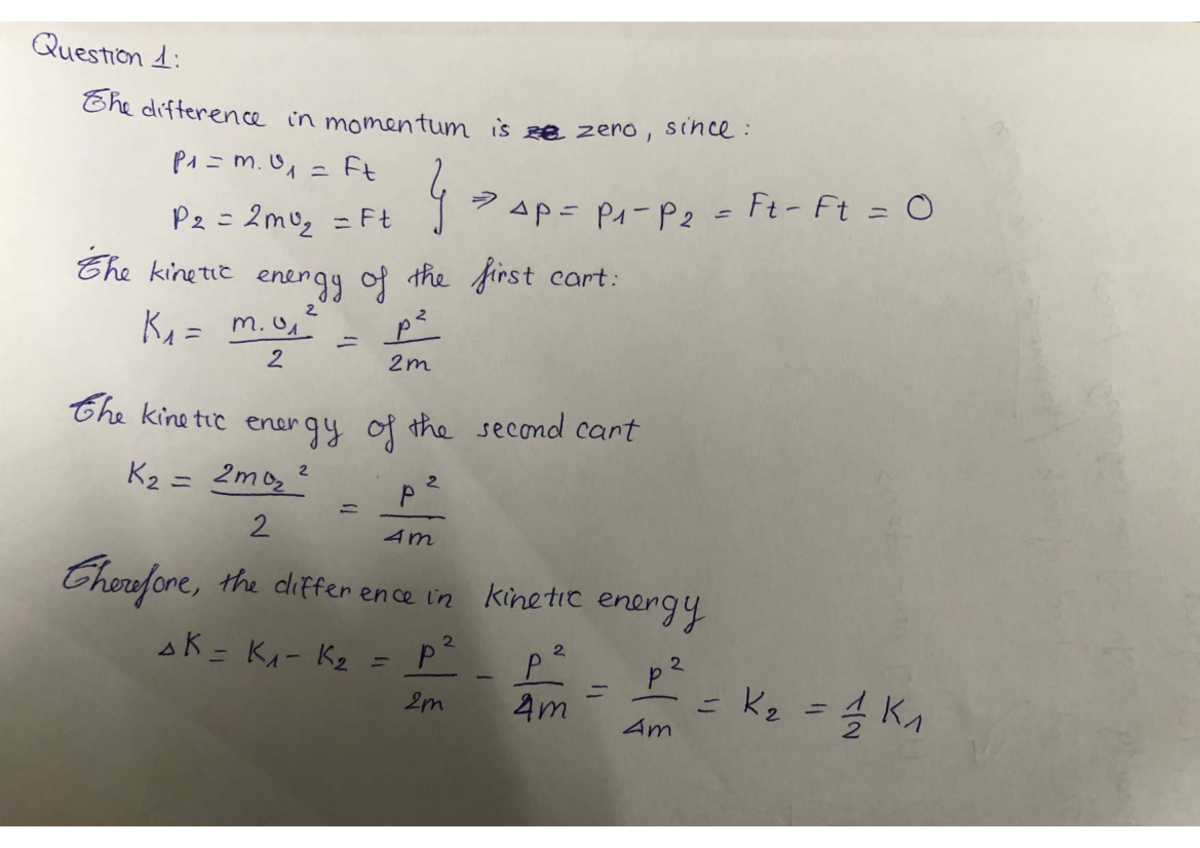 Question 1:
The difference in momentum is zero, since:
p1 = m.v1 = Ft
p2 = 2mv2 = Ft } ⇒ Δp = p1 - p2 = Ft - Ft = 0
The kinetic energy of the first cart:
K1 = m.v1² / 2 = p² / 2m
The kinetic energy of the second cart
K2 = 2mv2² / 2 = p² / 4m
Therefore, the difference in kinetic energy
ΔK = K1 - K2 = p² / 2m - p² / 4m = p² / 4m = K2 = 1/2 K1